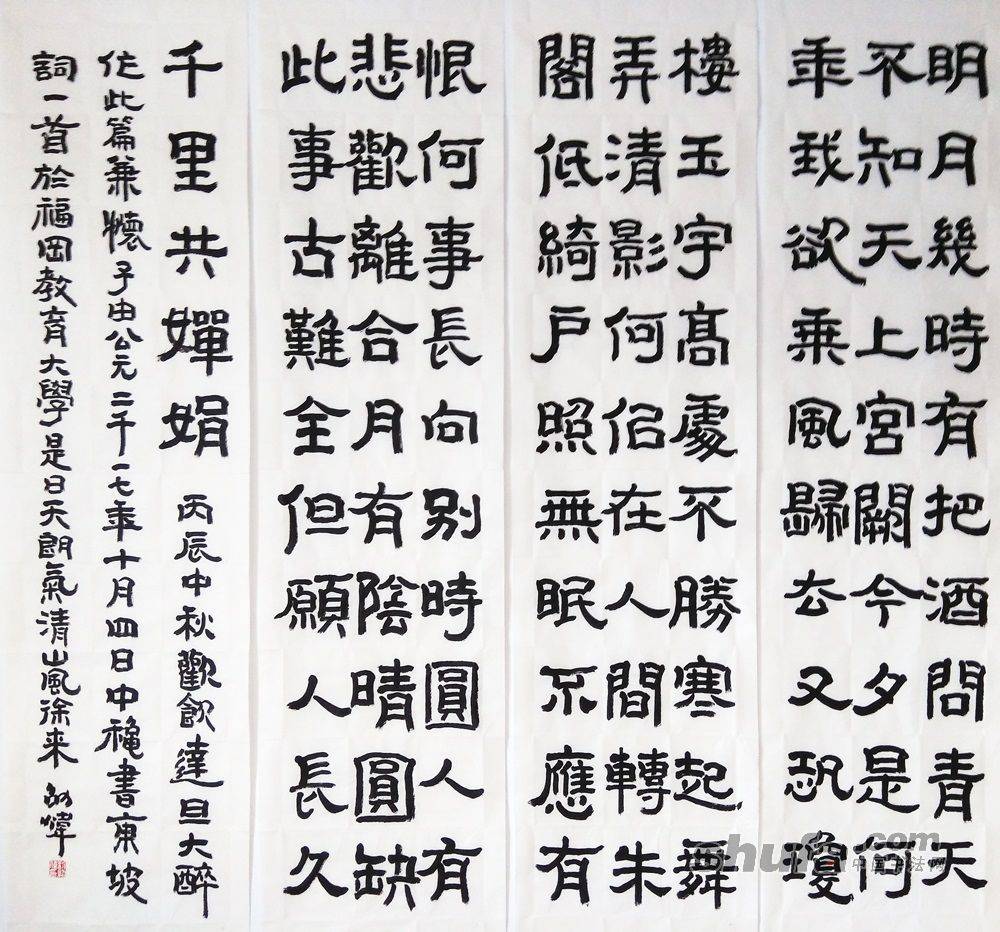 明月幾時有把酒問青天
不知天上宮闕今夕是何
年我欲乘風歸去又恐瓊
樓玉宇髙處不勝寒起舞
弄清影何似在人間轉朱
閣低綺戶照無眠不應有
恨何事長向別時圓人有
悲歡離合月有陰晴圓缺
此事古難全但願人長久
千里共嬋娟 丙辰中秋歡飲達旦大醉
作此篇兼懷子由公元二千一七年十月四日中秋書東坡
詞一首於福岡教育大學是日天朗氣清山風徐来
shufa.com
中国书法网